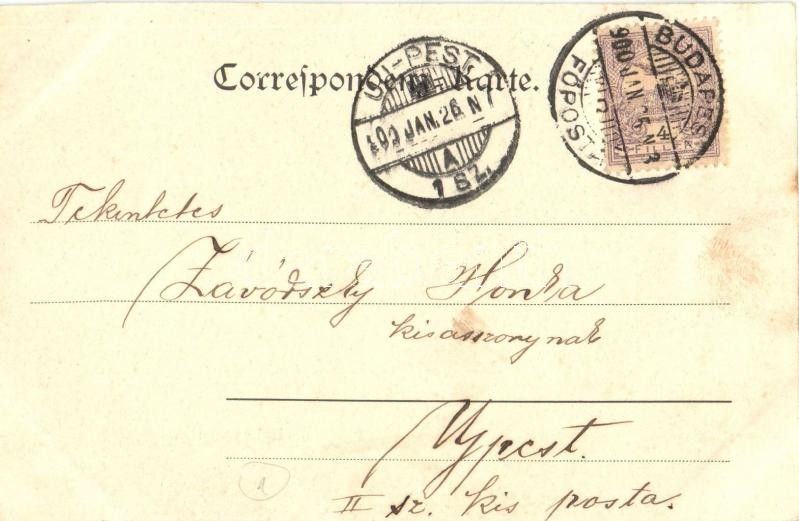 Correspondenz-Karte.
UJ-PEST
900 JAN. 26. N 7
A
1 SZ.
BUDAPEST
900 JAN 26
FŐPOSTA
Tekintetes
Závódszky Ilonka
kisasszonynak
Ujpest.
II sz. kis posta.
1